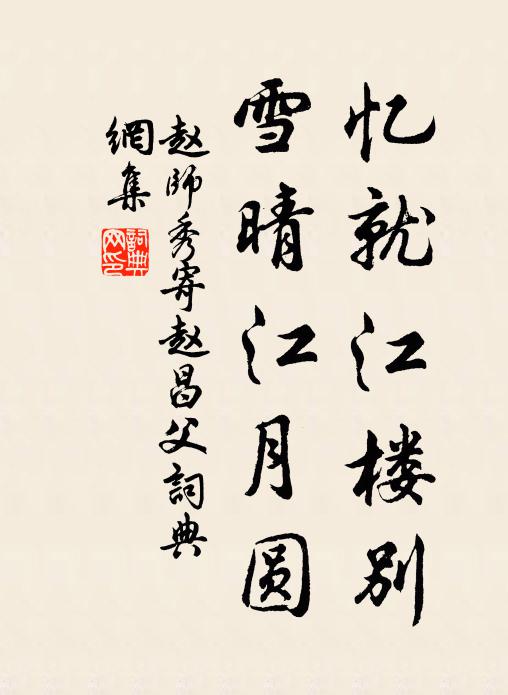 忆就江楼别
雪晴江月圆
赵师秀寄赵昌父词典
網集
詞典網印